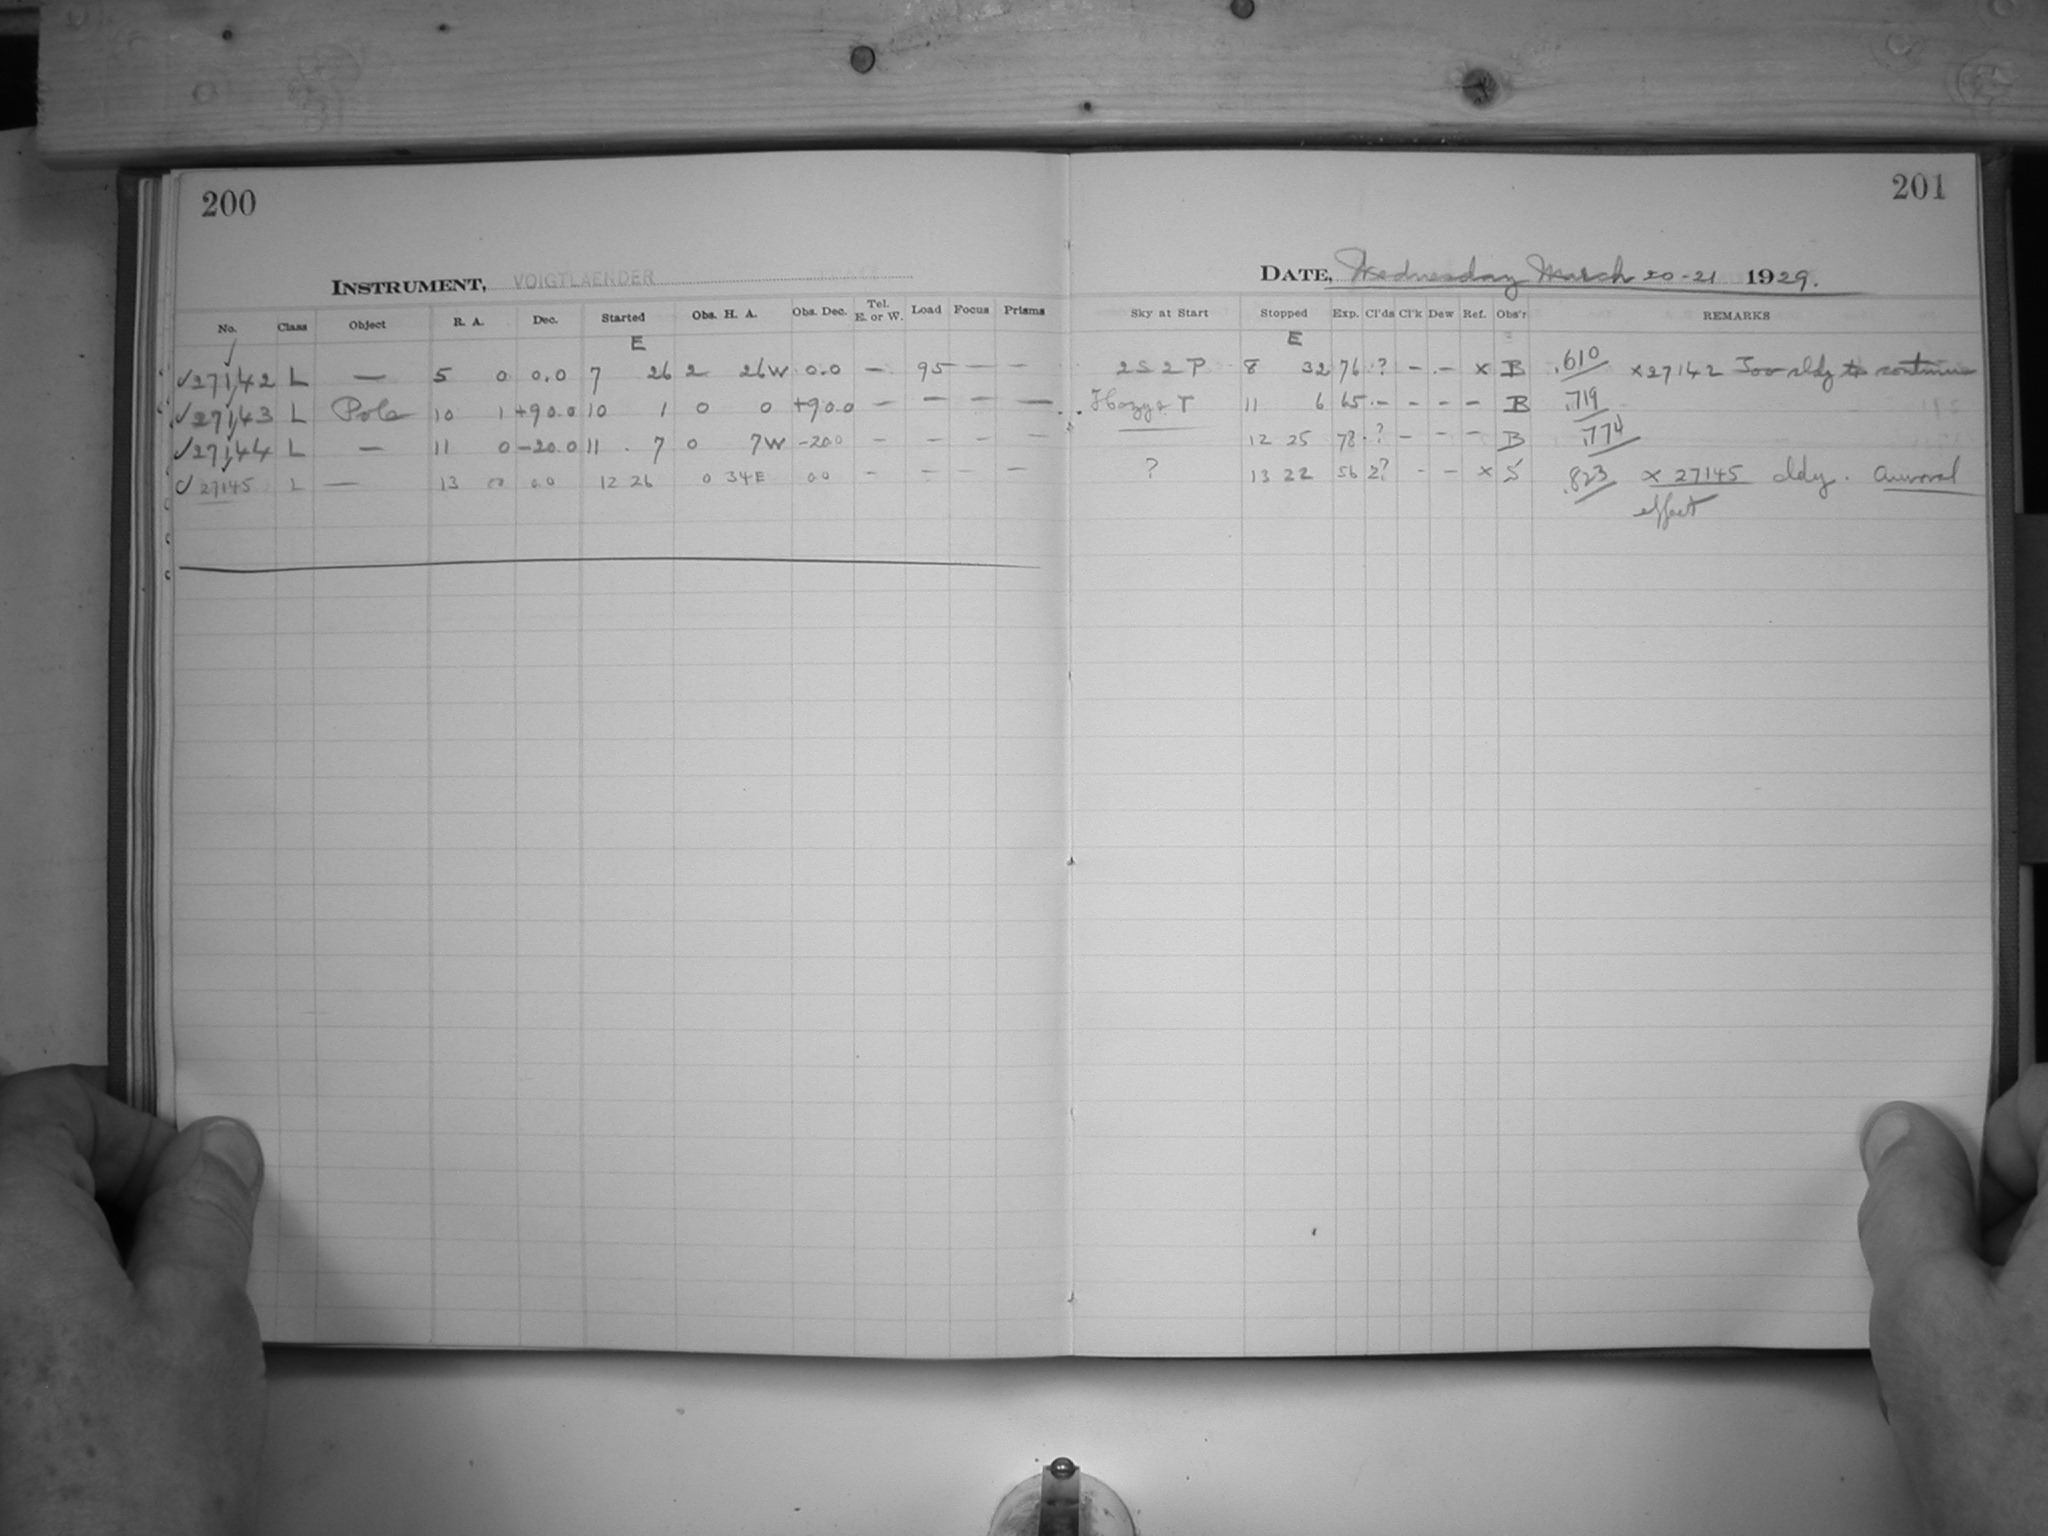 200
INSTRUMENT, VOIGTLAENDER
No. Class Object R. A. Dec. Started Obs. H. A. Obs. Dec. Tel. E. or W. Load Focus Prisms
E
✓27142 L — 5 0 0.0 7 26 2 26W 0.0 — 95 — —
✓27143 L Pole 10 1 +90.0 10 1 0 0 +90.0 — — — —
✓27144 L — 11 0 -20.0 11 7 0 7W -20.0 — — — —
✓27145 L — 13 0 0.0 12 26 0 34E 0.0 — — — —
201
DATE, Wednesday March 20-21 1929.
Sky at Start Stopped Exp. Cl'ds Cl'k Dew Ref. Obs'r REMARKS
E
2S 2P 8 32 76 ? - - x B .610 x27142 Too cldy to continue
Hazy & T 11 6 65 - - - - B .719
12 25 78 ? - - - B .774
? 13 22 56 2? - - x S .823 x 27145 cldy. Auroral
effect